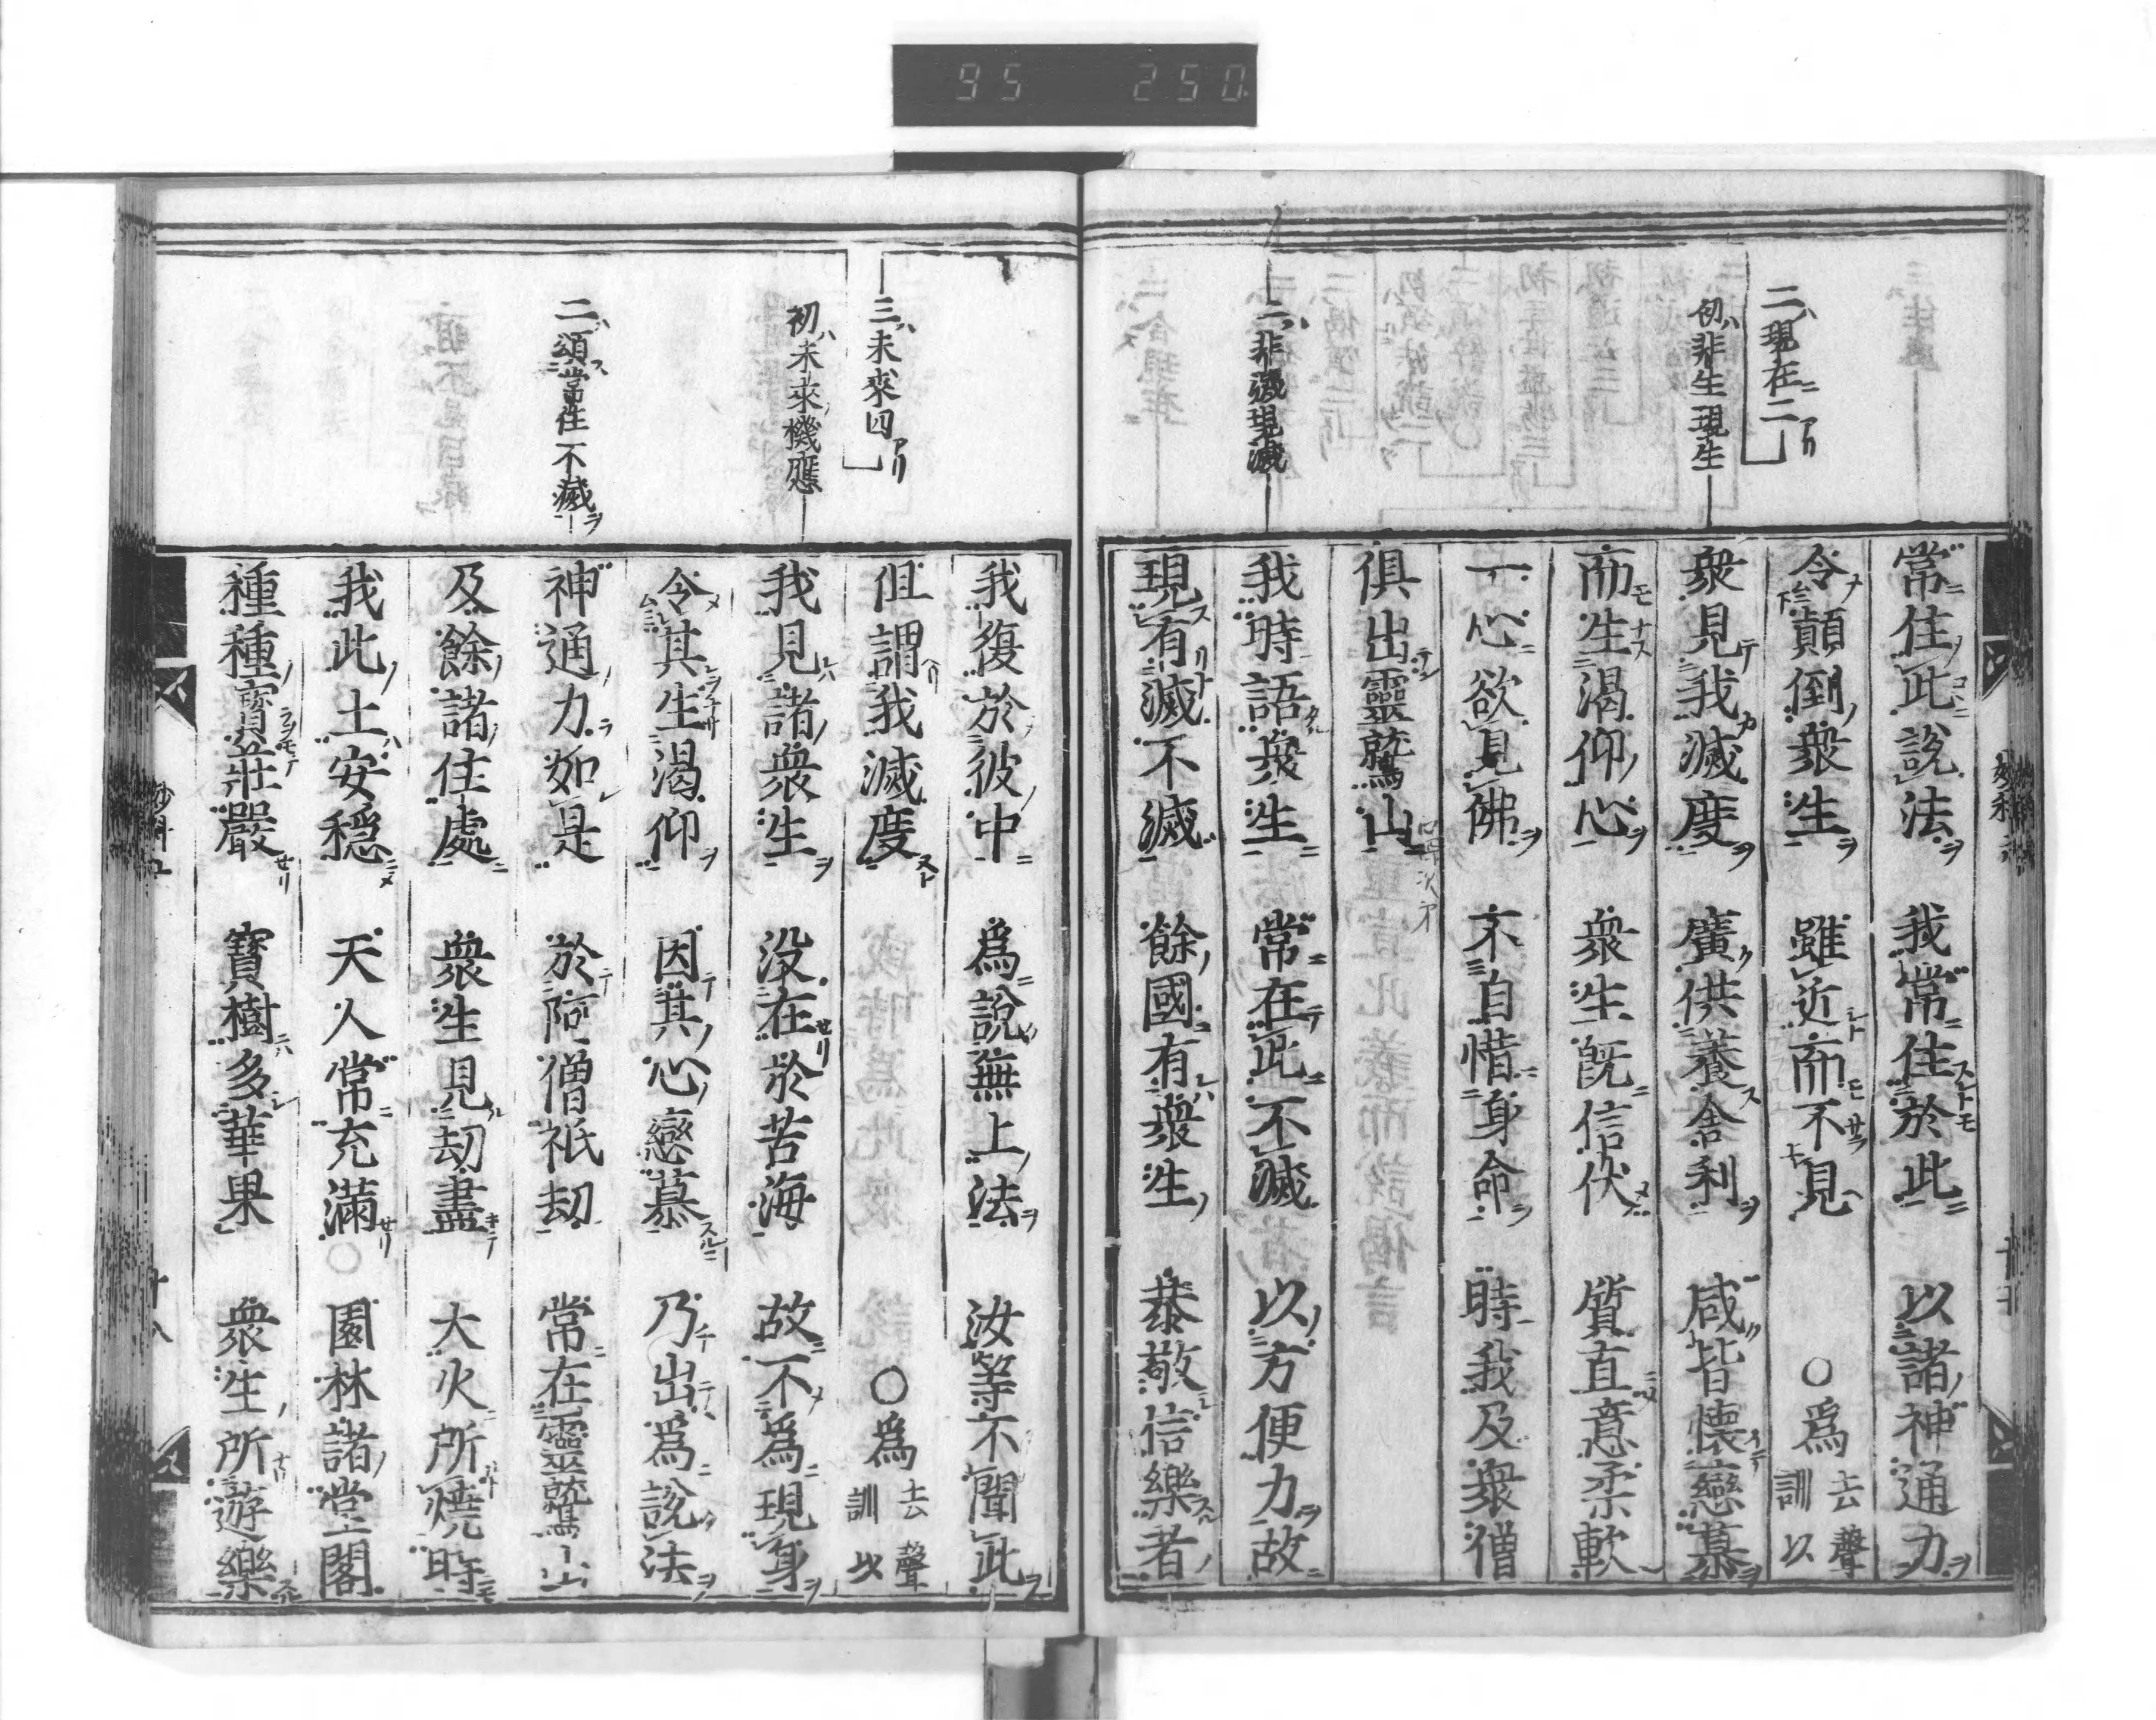 95 250
二ハ現在ニ二アリ
初ハ非生現生
二ハ非滅現滅
常住此說法 我常住於此 以諸神通力
令顛倒衆生 雖近而不見 ○爲 去聲 訓以
衆見我滅度 廣供養舍利 咸皆懐戀慕
而生渴仰心 衆生既信伏 質直意柔軟
一心欲見佛 不自惜身命 時我及衆僧
俱出靈鷲山
我時語衆生 常在此不滅 以方便力故
現有滅不滅 餘國有衆生 恭敬信樂者
三ハ未來四アリ
初ハ未來機應
二ハ頌ス常住不滅ヲ
我復於彼中 爲說無上法 汝等不聞此
但謂我滅度 ○爲 去聲 訓以
我見諸衆生 没在於苦海 故不爲現身
令其生渴仰 因其心戀慕 乃出爲說法
神通力如是 於阿僧祇劫 常在靈鷲山
及餘諸住處 衆生見劫盡 大火所燒時
我此土安穏 天人常充滿 園林諸堂閣
種種寶莊嚴 寶樹多華果 衆生所遊樂